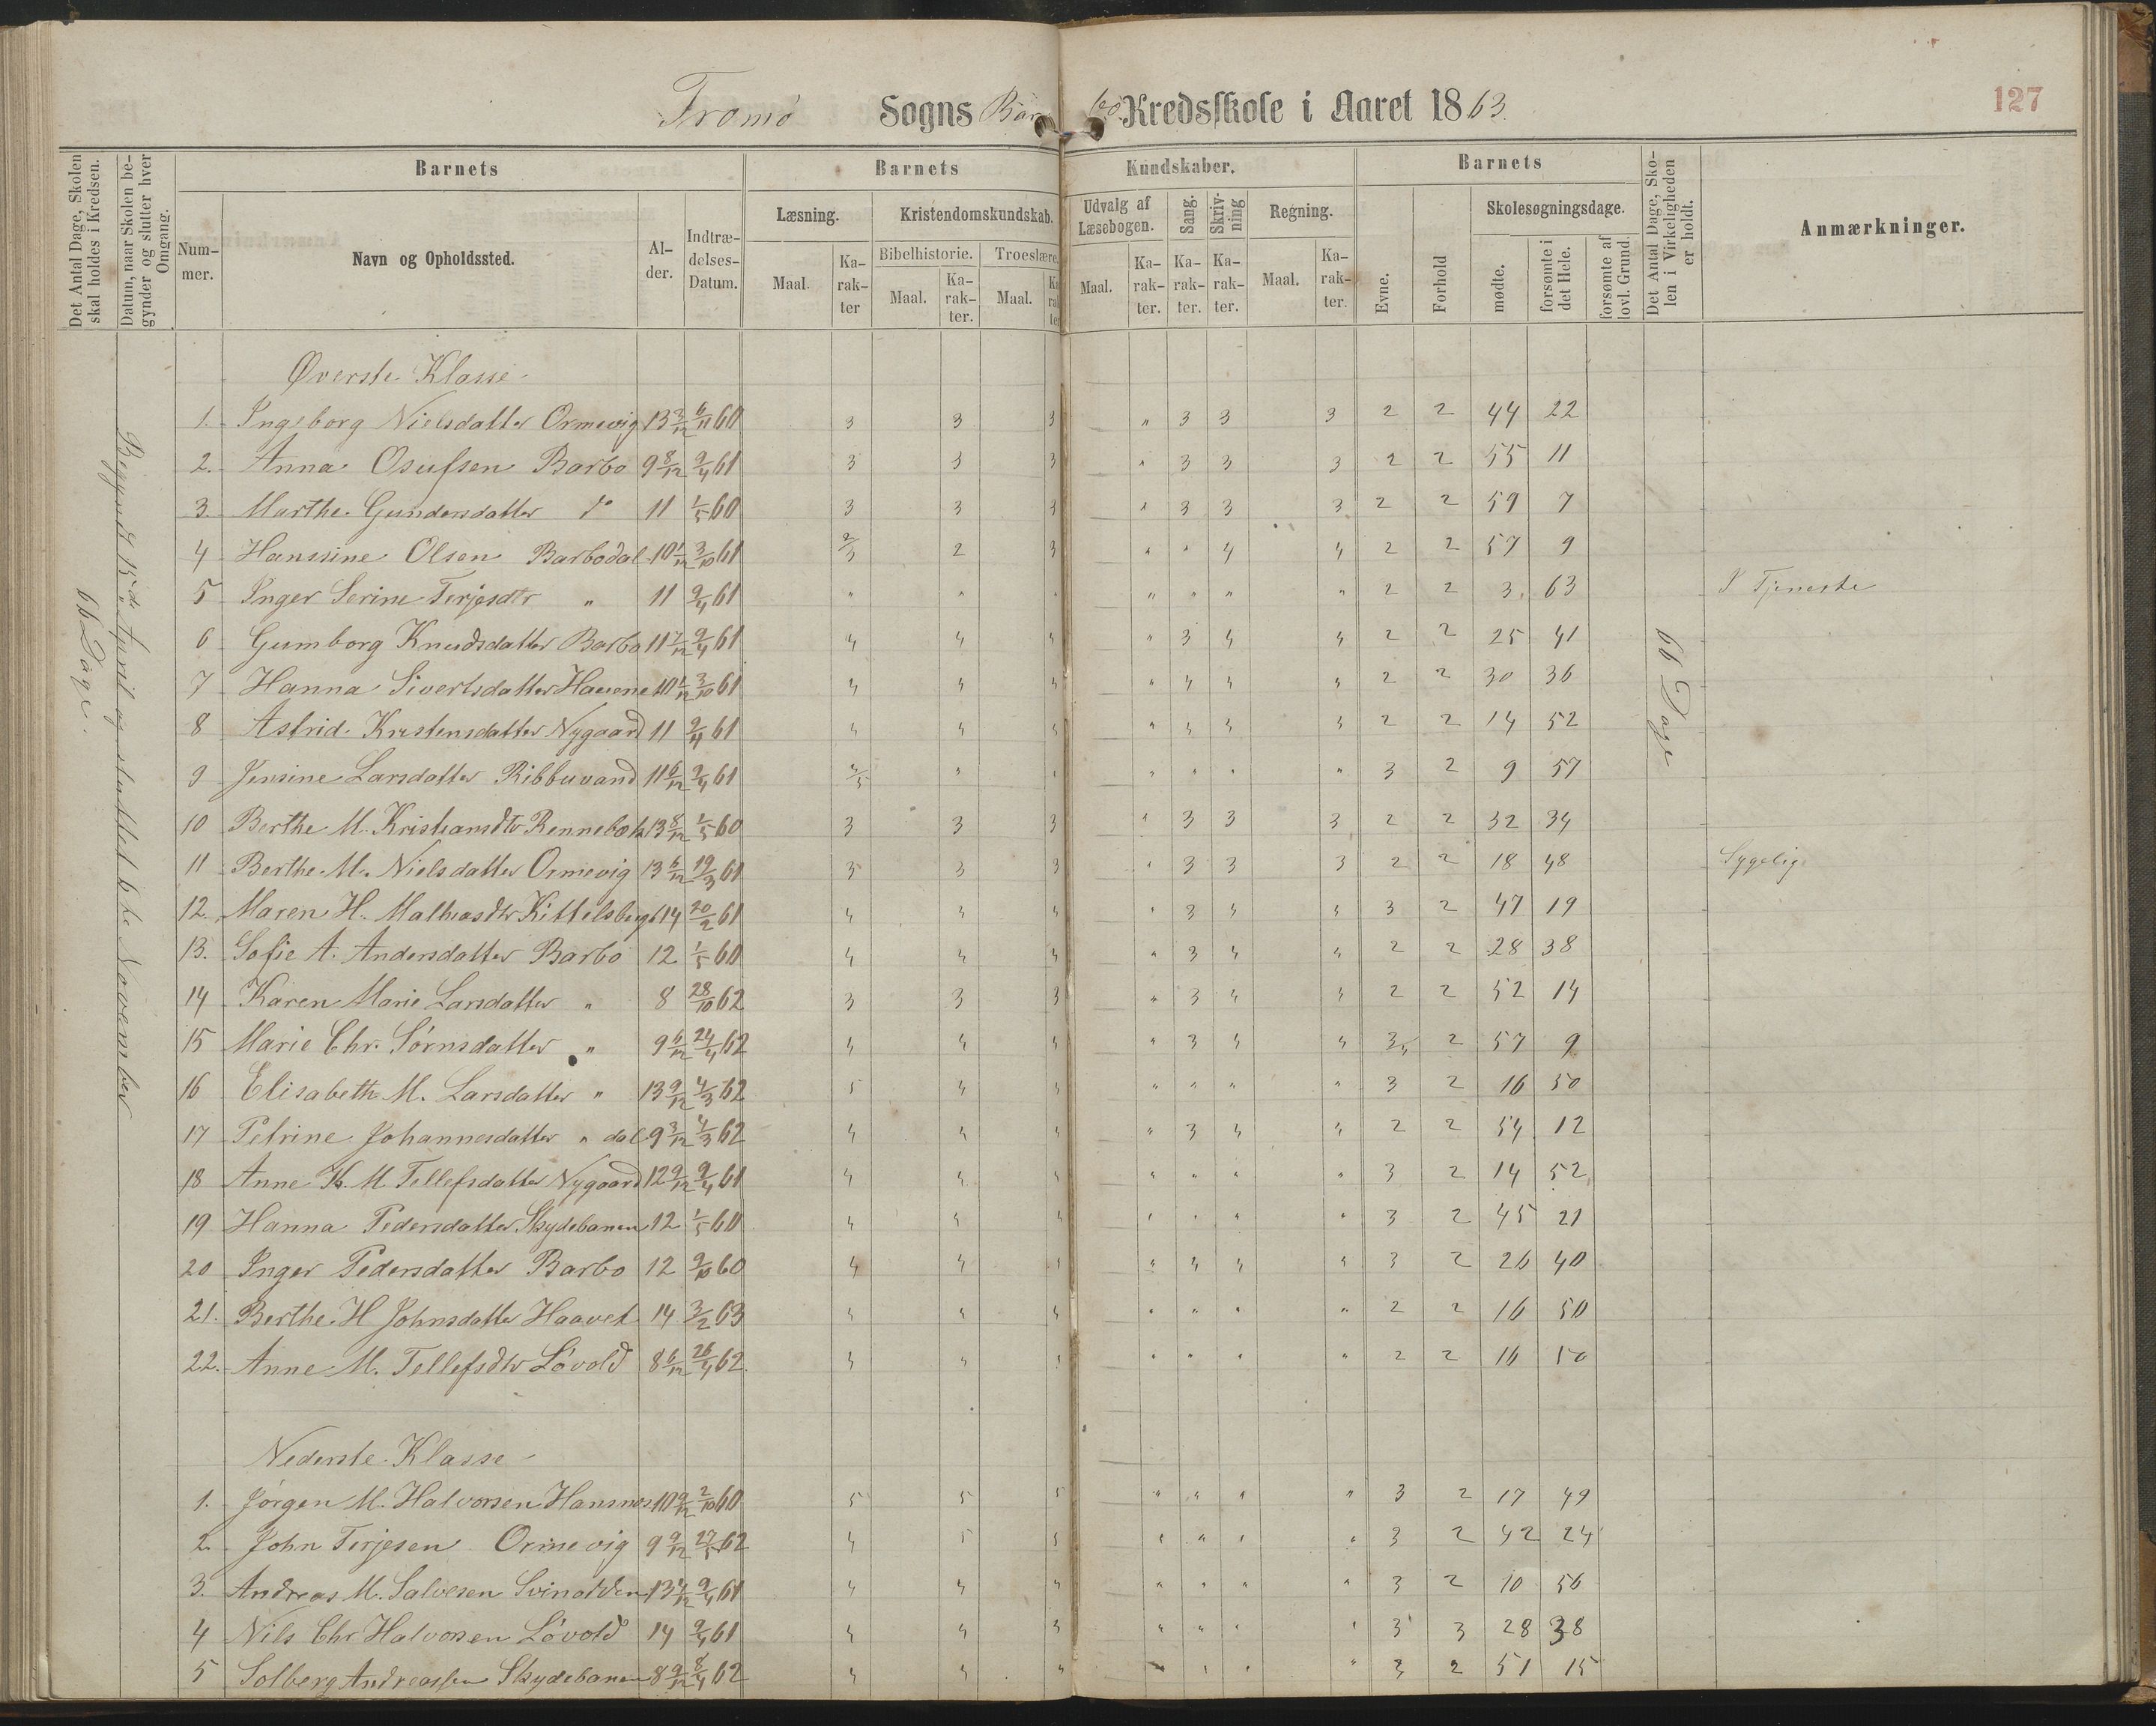 Tromø Sogns Barbo Kredsskole i Aaret 1863.
127
Det Antal Dage, Skolen skal holdes i Kredsen.
Datum, naar Skolen begynder og slutter hver Omgang.
Barnets
Nummer.
Navn og Opholdssted.
Alder.
Indtrædelses-Datum.
Barnets Kundskaber.
Læsning.
Maal.
Karakter
Kristendomskundskab.
Bibelhistorie.
Maal.
Karakter.
Troeslære.
Maal.
Karakter
Udvalg af Læsebogen.
Maal.
Karakter.
Sang.
Karakter.
Skrivning
Karakter.
Regning.
Maal.
Karakter.
Barnets
Evne.
Forhold
Skolesøgningsdage.
mødte.
forsømte i det Hele.
forsømte af lovl. Grund.
Det Antal Dage, Skolen i Virkeligheden er holdt.
Anmærkninger.
66 Dage.
Begyndt 15de April og sluttet 6te November
66 Dage
Øverste Klasse
1. Ingeborg Nielsdatter Ormevig 13 3/12 6/11 60 3 3 3 " 3 3 3 2 2 44 22
2. Anna Osufsen Barbo 9 8/12 9/4 61 3 3 3 " 3 3 3 2 2 55 11
3. Marthe Gundersdatter do 11 1/5 60 3 3 3 " 3 3 3 2 2 59 7
4 Hanssine Olsen Barbodal 10 1/12 3/10 61 2/3 2 3 " " 4 4 2 2 57 9
5 Inger Serine Terjesdtr " 11 9/4 61 " " " " " " " 2 2 3 63 I Tjeneste
6 Gumborg Knudsdatter Barbo 11 7/12 9/4 61 4 4 4 " 3 4 4 2 2 25 41
7 Hanna Sivertsdatter 10 1/12 3/10 61 4 4 4 " 4 4 4 2 2 30 36
8 Astrid Kristensdatter Nygaard 11 9/4 61 4 4 4 " 4 3 3 2 2 14 52
9 Jensine Larsdatter Ribbuvand 11 6/12 9/4 61 " " " " " " 3 2 9 57
10 Berthe M. Kristiansdtr 13 8/12 1/5 60 3 3 3 " 3 3 3 2 2 32 34
11 Berthe M. Nielsdatter Ormevig 13 6/12 19/3 61 3 3 3 " 3 3 3 2 2 18 48 Sygelig
12. Maren H. Mathiasdtr Kittelsbugt 14 20/2 61 4 4 4 " 3 4 4 3 2 47 19
13. Sofie A. Andersdatter Barbo 12 1/5 60 4 4 4 " 3 4 4 2 2 28 38
14 Karen Marie Larsdatter " 8 28/10 62 3 3 3 " 3 4 4 2 2 52 14
15 Marie Chr. Sørnsdatter " 9 6/12 24/4 62 4 4 4 " 3 4 4 3 2 57 9
16 Elisabeth M. Larsdatter " 13 9/12 4/3 62 5 4 4 " " " " 3 2 16 50
17 Petrine Johannesdatter " dal 9 3/12 4/3 62 4 4 4 " 3 4 4 2 2 54 12
18 Anne K. M. Tellefsdatter Nygaard 12 9/12 9/4 61 4 4 4 " " " " 3 2 14 52
19 Hanna Pedersdatter Skydebanen 12 1/5 60 4 4 4 " " " " 3 2 45 21
20 Inger Pedersdatter Barbo 12 9/10 60 4 4 4 " 4 4 4 3 2 26 40
21. Berthe H Johnsdatter Haavet 14 3/2 63 4 4 4 " " " " 2 2 16 50
22. Anne M. Tellefsdtr Løvold 8 6/12 26/4 62 4 4 4 " " " " 2 2 16 50
Nederste Klasse
1. Jørgen M. Halvorsen Hansnes 10 9/12 2/10 60 5 5 5 " " " " 3 2 17 49
2. John Terjesen Ormevig 9 9/12 27/5 62 4 5 5 " " " " 3 2 42 24
3. Andreas M. Salvesen 13 4/12 9/4 61 4 4 4 " " " " 3 2 10 56
4 Nils Chr Halvorsen Løvold 14 9/4 61 4 4 3 " " " " 3 3 28 38
5 Solberg Andreassen Skydebanen 8 9/12 8/4 62 4 4 4 " " " 3 2 51 15